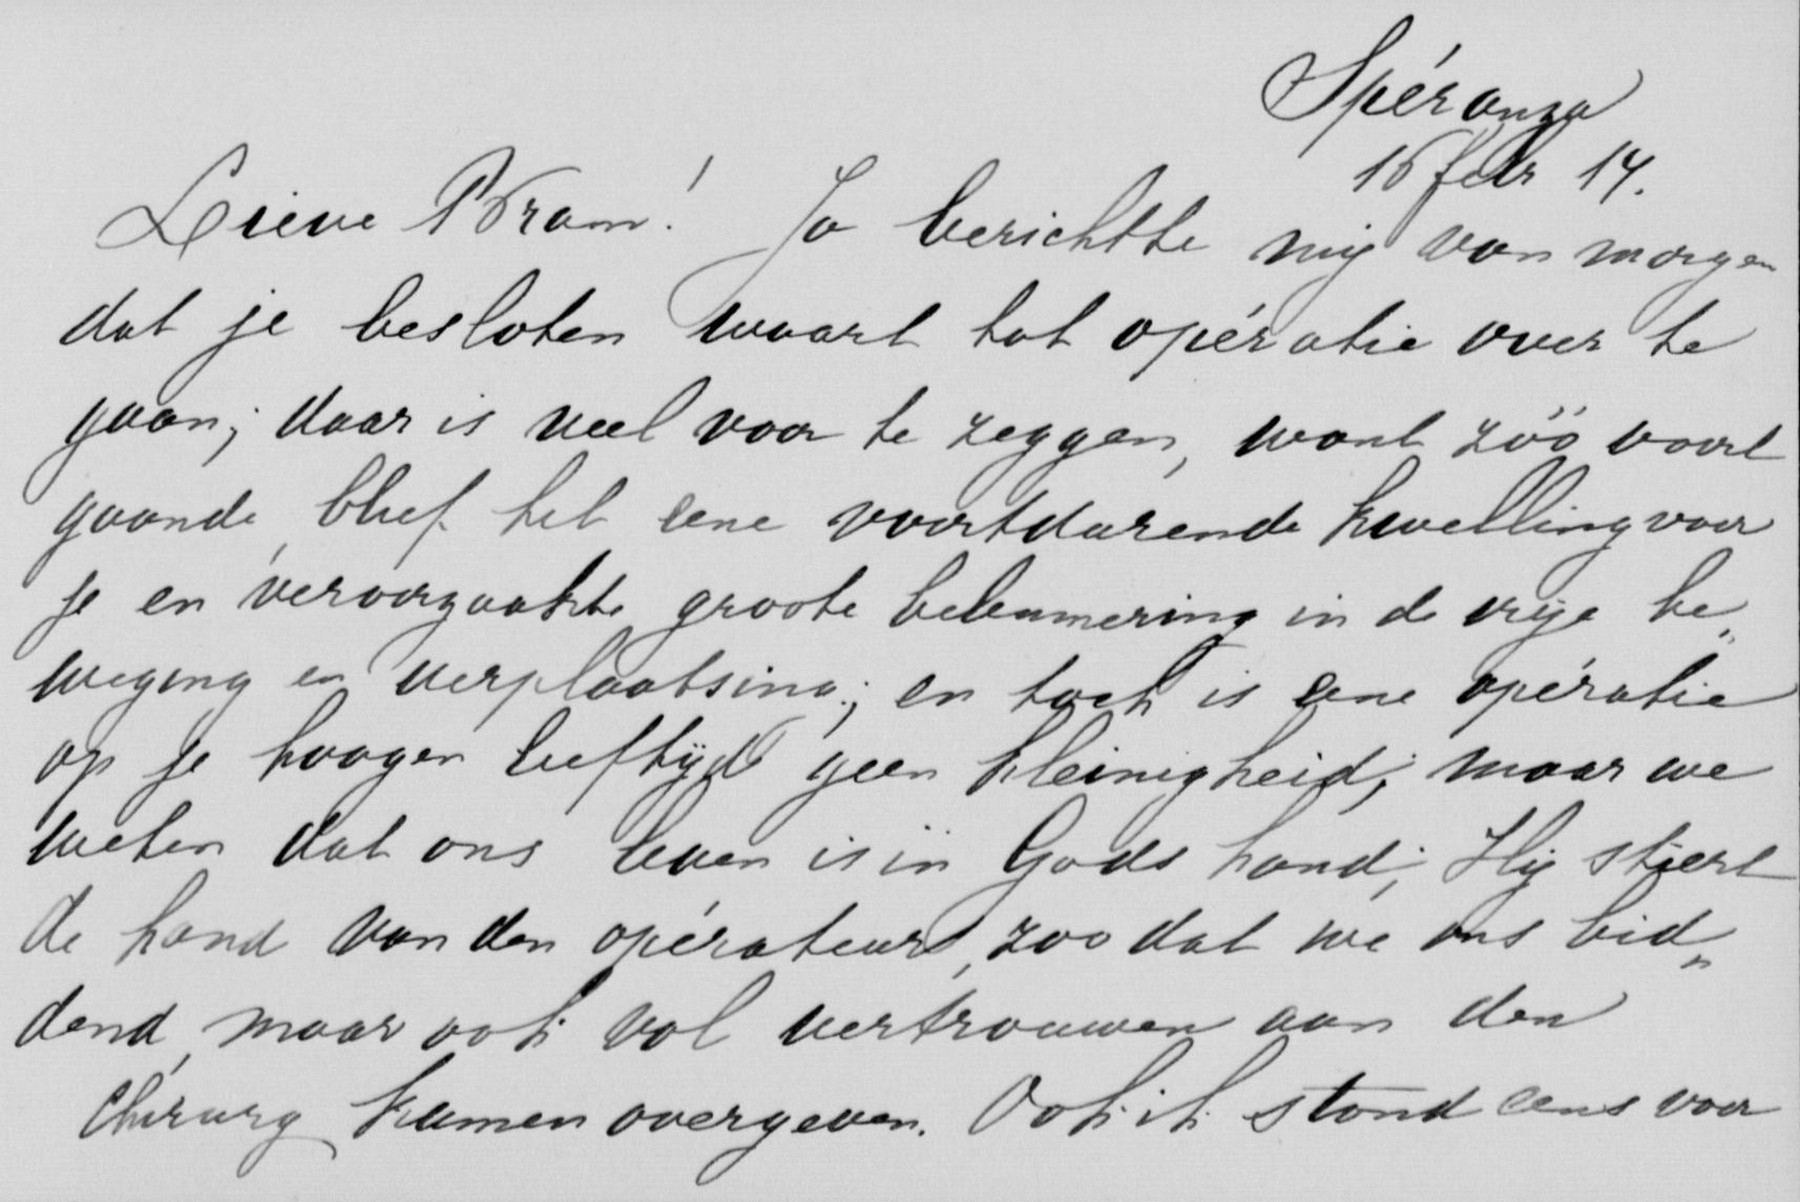 Spéranza
16 febr 14.
Lieve Bram! Jo berichtte mij van morgen
dat je besloten waart tot opératie over te
gaan; daar is veel voor te zeggen, want zóó voort
gaande, bleef het eene voortdurende kwelling voor
je en veroorzaakte groote belemmering in de vrije be„
weging en verplaatsing; en toch is eene opératie
op je hoogen leeftijd geen kleinigheid; maar we
weten dat ons leven is in Gods hand; Hij stiert
de hand van den opérateur, zoo dat we ons bid„
dend, maar ook vol vertrouwen aan den
chirurg kunnen overgeven. Ook ik stond eens voor